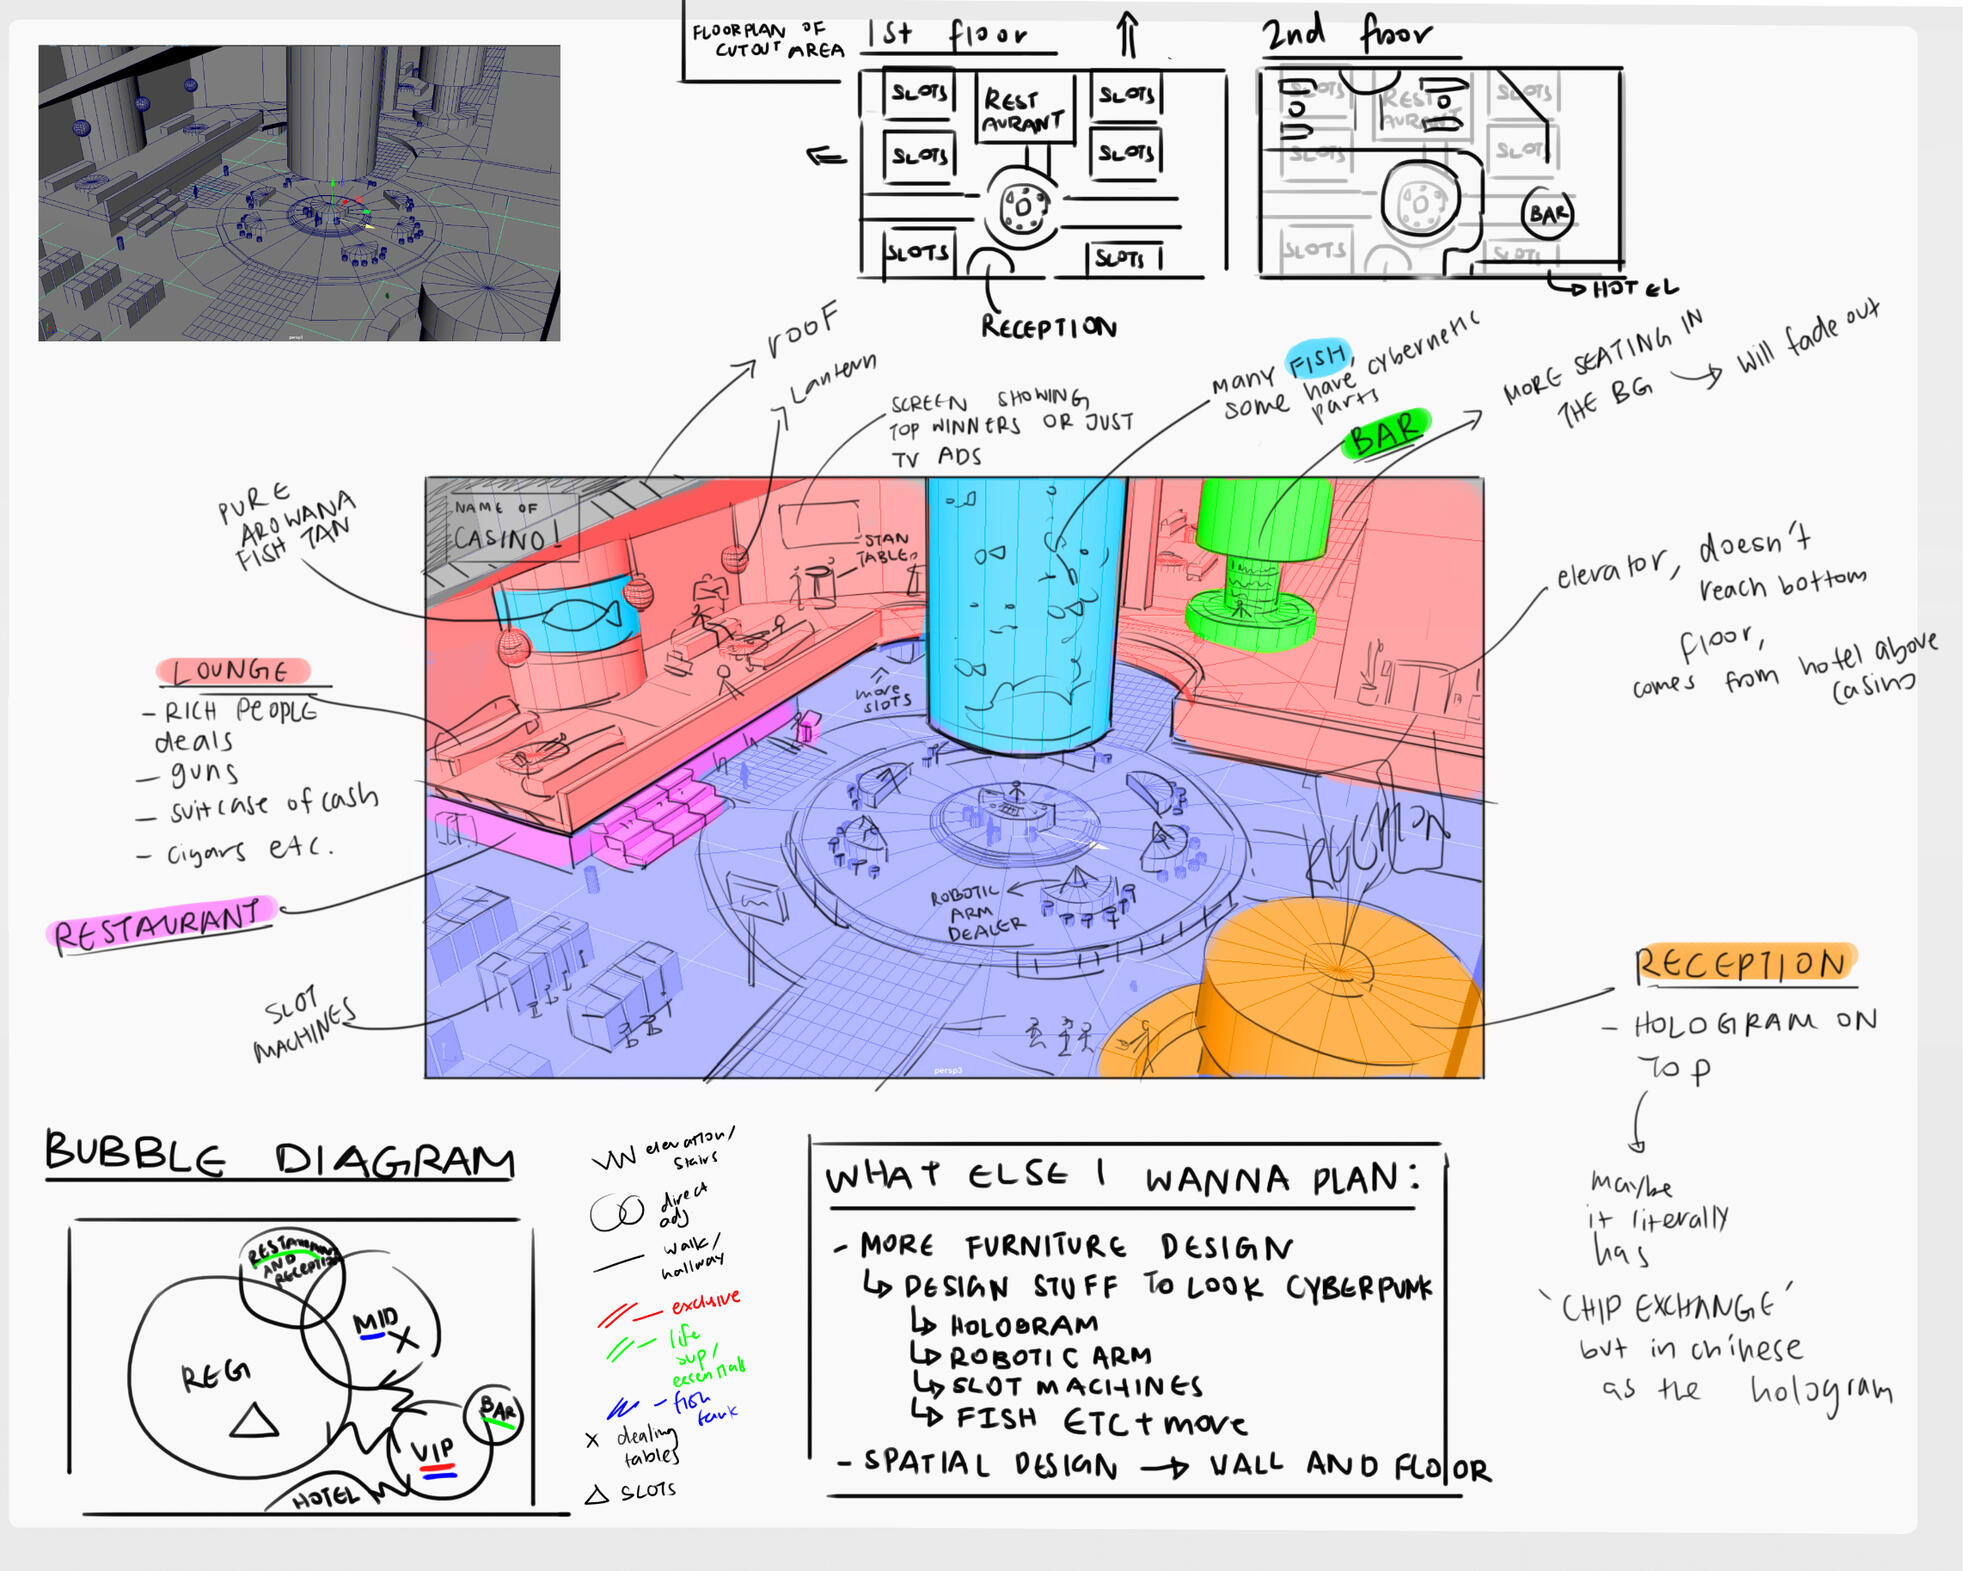 FLOORPLAN OF
CUTOUT AREA
1st floor
SLOTS
REST
AURANT
SLOTS
SLOTS
SLOTS
SLOTS
SLOTS
RECEPTION
2nd floor
SLOTS
REST
AURANT
SLOTS
SLOTS
SLOTS
SLOTS
SLOTS
BAR
HOTEL
persp3
roof
Lantern
SCREEN SHOWING
TOP WINNERS OR JUST
TV ADS
many FISH,
some have cybernetic
parts
BAR
MORE SEATING IN
THE BG
will fade out
PURE
AROWANA
FISH TAN
NAME OF
CASINO!
STAN
TABLE
elevator, doesn't
reach bottom
floor,
comes from hotel above
casino
LOUNGE
- RICH PEOPLE
deals
- guns
- suitcase of cash
- cigars etc.
more
slots
RESTAURANT
ROBOTIC
ARM
DEALER
SLOT
MACHINES
persp3
RECEPTION
- HOLOGRAM ON
TOP
maybe
it literally
has
'CHIP EXCHANGE'
but in chinese
as the hologram
BUBBLE DIAGRAM
RESTAURANT
AND
RECEPTION
MID
X
REG
BAR
VIP
HOTEL
elevation/
stairs
direct
adj
walk/
hallway
- exclusive
- life
sup/
essentials
- fish
tank
x dealing
tables
SLOTS
WHAT ELSE I WANNA PLAN:
- MORE FURNITURE DESIGN
DESIGN STUFF TO LOOK CYBERPUNK
HOLOGRAM
ROBOTIC ARM
SLOT MACHINES
FISH ETC + more
- SPATIAL DESIGN → WALL AND FLOOR